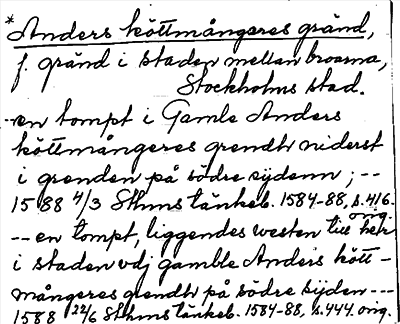 *Anders köttmångeres gränd,
f. gränd i staden mellan broarna,
Stockholms stad.
-en tompt i Gamle Anders
köttmångeres grendh niderst
i grenden på södre sijdenn; --
1588 4/3 Sthms tänkeb. 1584-88, s. 416.
orig.
-- en tompt, liggendes westen till her
i staden vdj gamble Anders kött-
mångeres grendh på södre sijden ---
1588 22/6 Sthms tänkeb. 1584-88, s. 444. orig.